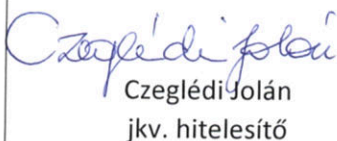 Czeglédi Jolán
Czeglédi Jolán
jkv. hitelesítő